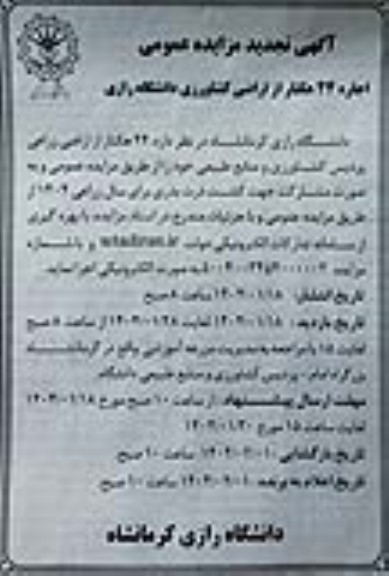 آگهی تجدید مزایده عمومی
اجاره ۲۳ هکتار از اراضی کشاورزی دانشگاه رازی
دانشگاه رازی کرمانشاه در نظر دارد ۲۳ هکتار از اراضی زراعی
پردیس کشاورزی و منابع طبیعی خود را از طریق مزایده عمومی و به
صورت مشارکت جهت کشت ذرت بذری برای سال زراعی ۱۴۰۳ از
طریق مزایده عمومی و با جزئیات مندرج در اسناد مزایده با بهره گیری
از سامانه تدارکات الکترونیکی دولت setadiran.ir و با شماره
مزایده به صورت الکترونیکی اجرا نماید.
تاریخ انتشار: ۱۴۰۳/۰۱/۱۸ ساعت ۸ صبح
تاریخ بازدید: ۱۴۰۳/۰۱/۱۸ لغایت ۱۴۰۳/۰۱/۲۸ از ساعت ۸ صبح
لغایت ۱۵ با مراجعه به مدیریت مزرعه آموزشی واقع در کرمانشاه
بزرگراه امام - پردیس کشاورزی و منابع طبیعی دانشگاه.
مهلت ارسال پیشنهاد: از ساعت ۱۰ صبح مورخ ۱۴۰۳/۰۱/۱۸
لغایت ساعت ۱۵ مورخ ۱۴۰۳/۰۱/۳۰
تاریخ بازگشایی: ساعت ۱۰ صبح
تاریخ اعلام به برنده: ساعت ۱۰ صبح
دانشگاه رازی کرمانشاه